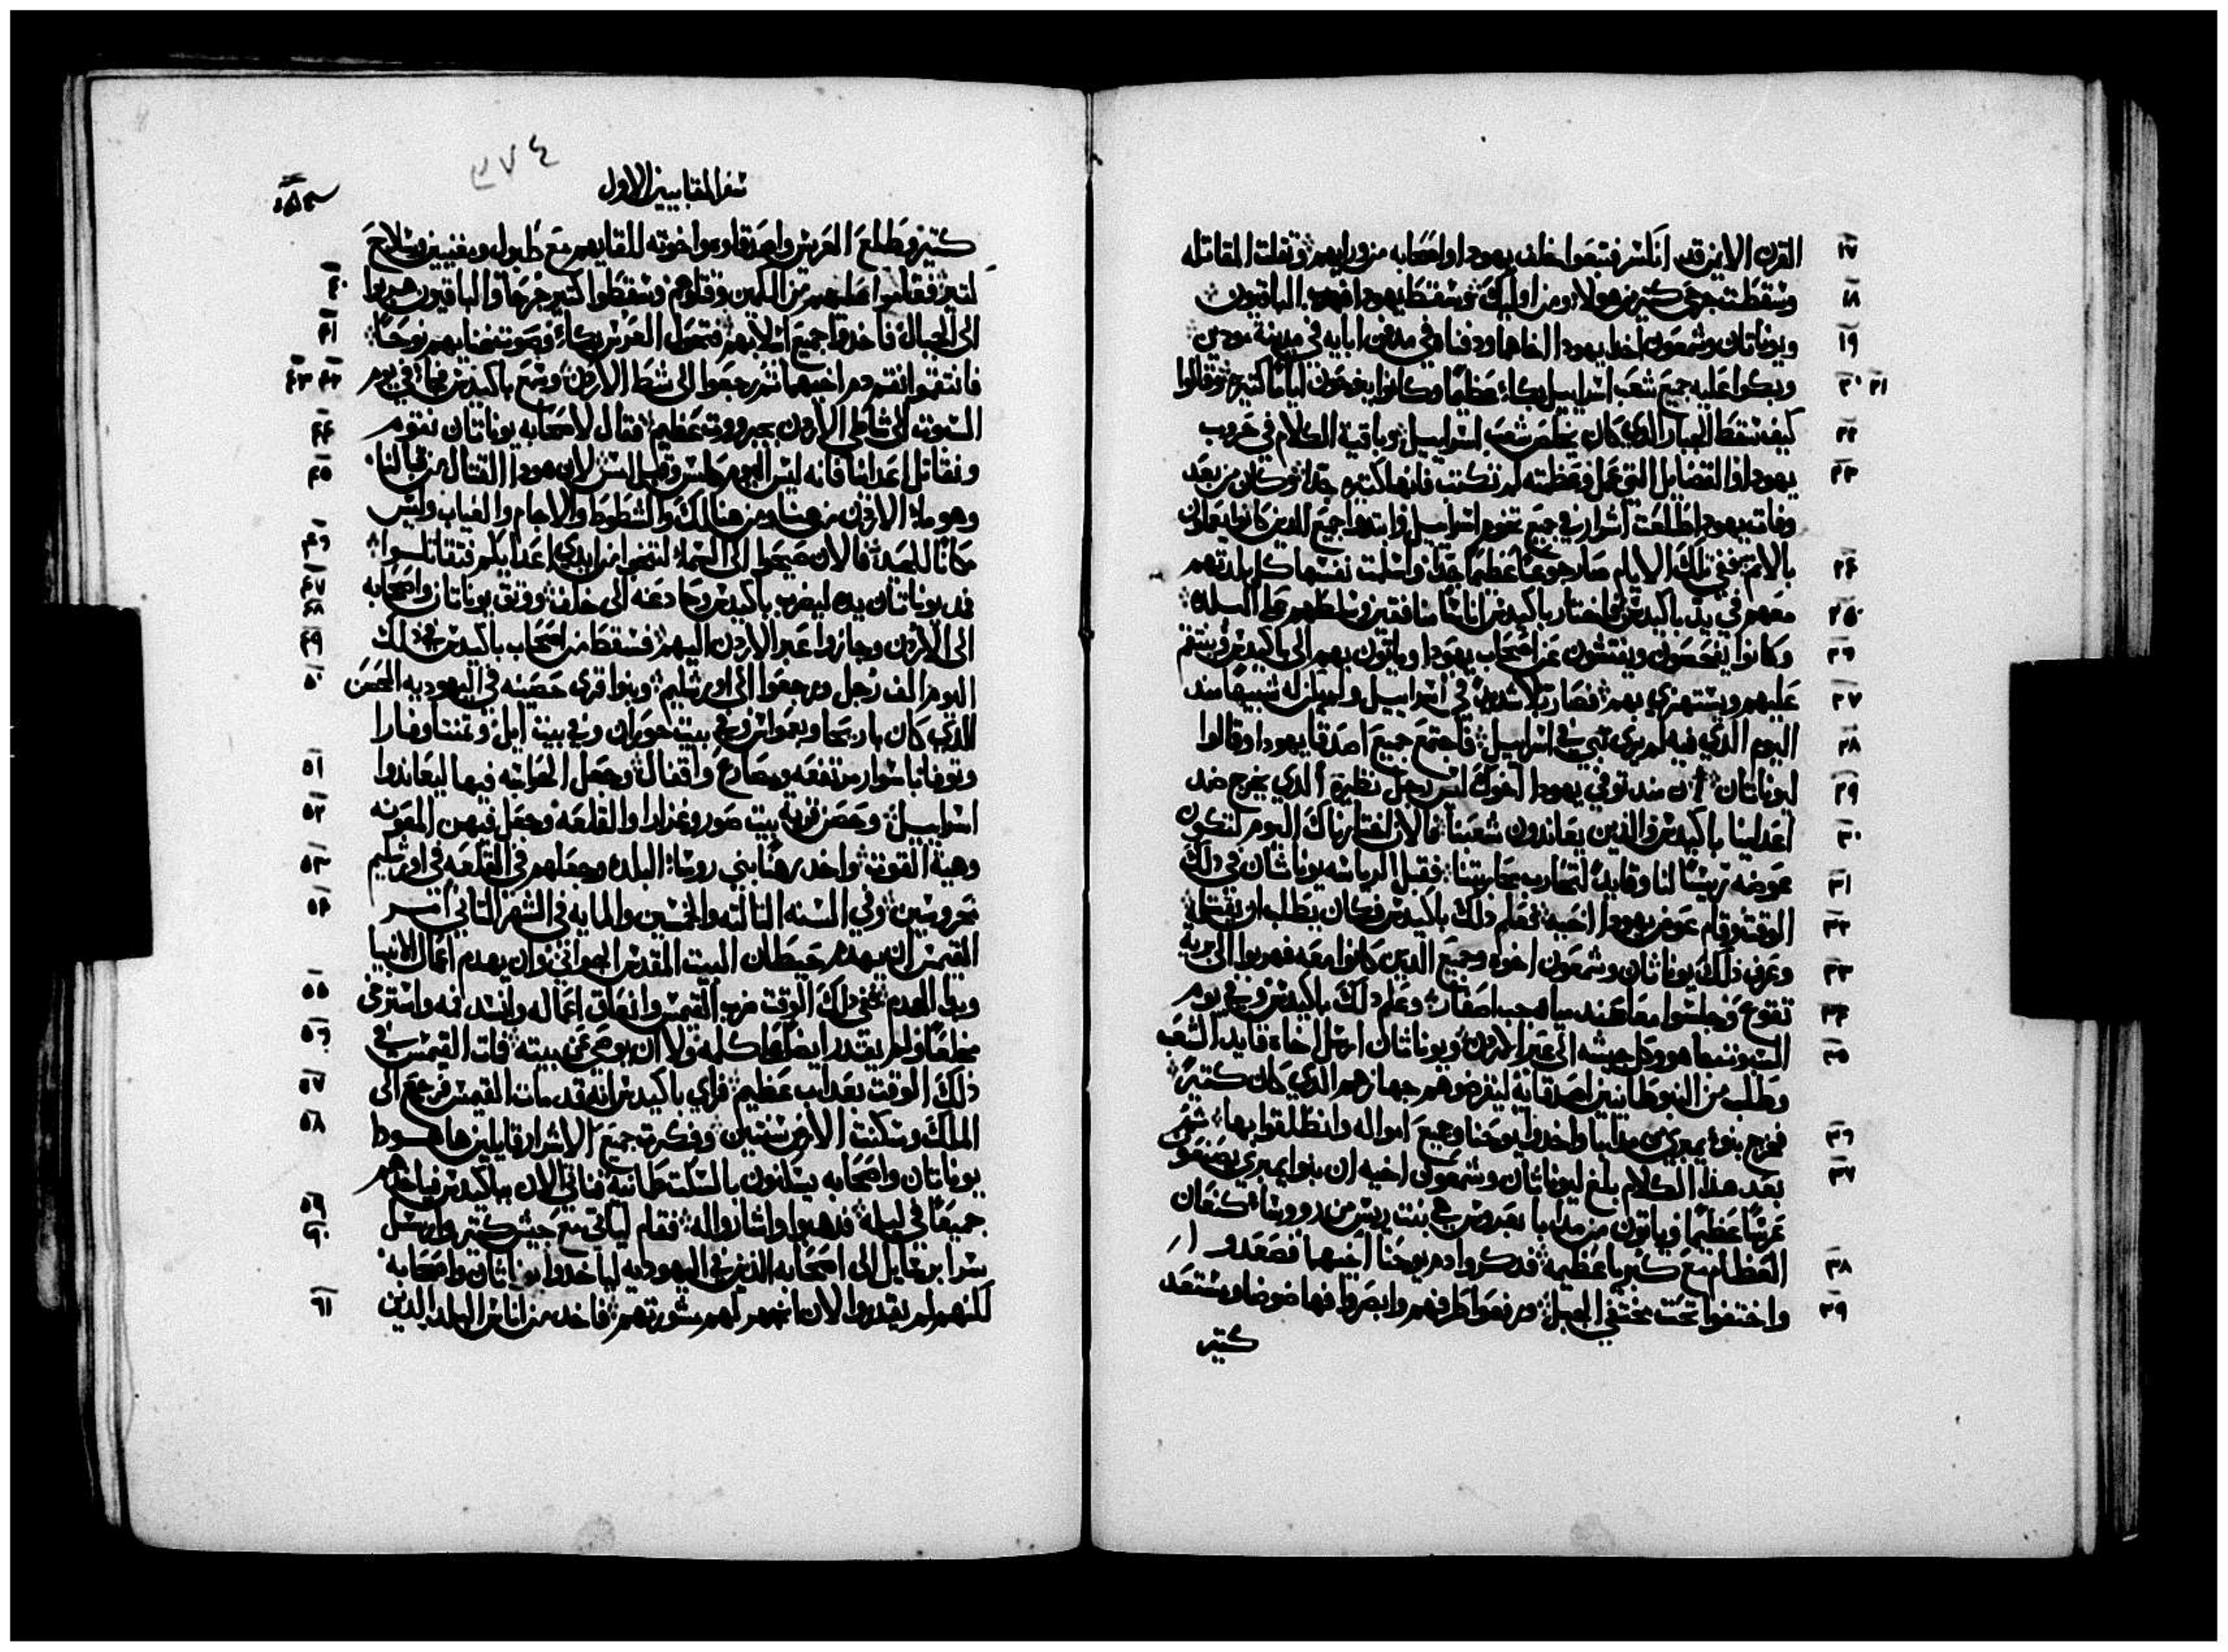 ١٧ القرن الايمن قد انكسر فتبعوا خلف يهودا واصحابه من ورايهم وثقلت المقاتله
١٨ وسقطت جرحى كثير من هولاء ومن اوليك وسقط يهودا فهرب الباقيون
١٩ ويوناتان وشمعون اخدا يهودا اخاهما ودفناه في مدفن ابايه في مدينة مودين
٢٠ ٢١ وبكوا عليه جميع شعب اسراييل بكاء عظيما وكانوا ينوحون اياما كثيره وقالوا
٢٢ كيف سقط الجبار الدي كان يخلص شعب اسراييل وباقية الكلام في حروب
٢٣ يهودا والفضايل التي عمل وعظمته لم تكتب فانها كثيره جدا وكان من بعد
وفاة يهودا طلعت اشرار في جميع تخوم اسراييل وابتدوا جميع الدين كانوا يعملون
٢٤ بالاثم ففي تلك الايام صار جوعا عظيما جدا واسلمت نفسها كل بلدتهم
٢٥ معهم في يد باكيدس فاختار باكيدس اناسا منافقين وسلطهم على البلده
٢٦ وكانوا يفحصون ويفتشون عن اصحاب يهودا وياتون بهم الى باكيدس وينتقم
٢٧ عليهم ويستهزي بهم فصار بلا شديد في اسراييل ولم يكن له شبيها مند
٢٨ اليوم الدي فيه لم يرى نبي في اسراييل فاجتمع جميع اصدقا يهودا وقالوا
٢٩ ليوناتان ان مند توفي يهودا اخوك ليس رجل نظيره الدي يخرج ضد
٣٠ اعداينا باكيدس والدين يعاندون شعبنا فالان اخترناك اليوم لتكون
٣١ عوضه رييسا لنا وقايدا لتحارب محاربتنا فقبل الرياسه يوناثان في دلك
٣٢ الوقت وقام عوض يهودا اخيه فعلم دلك باكيدس فكان يطلب ان يقتله
٣٣ وعرف دلك يوناثان وشمعون اخوه وجميع الدين كانوا معه فهربوا الى برية
٣٤ تقوع وجلسوا معا عند مياه جب اصفار وعلم دلك باكيدس وفي يوم
٣٥ السبوت جا هو وكل جيشه الى عبر الاردن ويوناتان ارسل اخاه قايد الشعب
وطلب من النبوطانيين اصدقايه ليقرضوهم جهازهم الدي كان كثيرا
٣٦ فخرج بنو يمبري من مدابا واخدوا يوحنا وجميع امواله وانطلقوا بها ثم
٣٧ بعد هدا الكلام بلغ ليوناتان وشمعون اخيه ان بنوا يمبري يصنعون
عرسا عظيما وياتون من مدابا بعروس هي بنت رييس من رووسا كنعان
٣٨ العظام مع كبريا عظيمة فدكروا دم يوحنا اخيهما فصعدوا
٣٩ واختفوا تحت مختفي الجبل ورفعوا طرفهم وابصروا فها ضوضا ومستعد
كثير
٢٧٤
سفر المقابيين الاول
كثير وطلع العريس واصدقاوه واخوته للقايهم مع طبول ومغنيين وسلاح
٤٠ كثير فقاموا عليهم من الكمين وقتلوهم وسقطوا كثير جرحا والباقيون هربوا
٤١ الى الجبال فاخدوا جميع اسلابهم فتحول العرس بكاء وصوت غنايهم نوحا
٤٢ ٤٣ فانتقموا نقمة دم اخيهما ثم رجعوا الى شط الاردن وسمع باكيدس فجاء في يوم
٤٤ السبوت الى شاطي الاردن بجبروت عظيم فقال لاصحابه يوناتان نقوم
٤٥ ونقاتل اعدانا فانه ليس اليوم كامس وقبل امس لان هودا القتال من قبالنا
وهو ماء الاردن من هنا ومن هنالك والشطوط والاجام والغياب وليس
٤٦ مكانا للحيد فالان صيحوا الى السماء لتنجوا من ايدي اعدايكم فتقاتلوا
٤٧ فمد يوناتان يده ليضرب باكيدس وحاد عنه الى خلف ووثق يوناتان واصحابه
٤٨ ٤٩ الى الاردن وجازوا عبر الاردن اليهم فسقط من اصحاب باكيدس في دلك
٥٠ اليوم الف رجل ورجعوا الى اورشليم وبنوا قرى حصينه في اليهوديه الحصن
الدي كان باريحا وبعمواس وفي بيت حوران وفي بيت ايل وتمنتا وفارا
٥١ وتوفا باسوار مرتفعه ومصارع واقفال وجعل الحراسه فيها ليعاندوا
٥٢ اسراييل وحصن قرية بيت صور وغزارا والقلعه وجعل فيهن المعونه
٥٣ وهية القوت واخد رهنا بني روسا البلده وجعلهم في القلعه في اورشليم
٥٤ محروسين وفي السنه التالته والخمسين والمايه في الشهر التاني امر
القيمس ان يهدم حيطان البيت المقدس الجواني وان يهدم اعمال الانبيا
٥٥ وبدا الهدم ففي دلك الوقت ضرب القيمس وانعاق اعماله وانسد فمه واسترخى
٥٦ مخلعا ولم يقدر ايضا يتكلم كلمه ولا ان يوصي عن بيته فات القيمس في
٥٧ دلك الوقت بعداب عظيم فراي باكيدس انه قد مات القيمس فرجع الى
٥٨ الملك وسكنت الارض سنتين وفكرت جميع الاشرار قايلين ها هودا
يوناتان واصحابه يسكنون بالسكت طمانيه فناتي الان بباكيدس فياخدهم
٥٩ ٦٠ جميعا في ليله فدهبوا واشاروا له فقام لياتي مع جيش كثير وارسل
سرا برسايل الى اصحابه الدين في اليهوديه لياخدوا يوناثان واصحابه
٦١ لكنهم لم يقدروا لان انجهر لهم مشورتهم فاخد من اناس البلد الدين